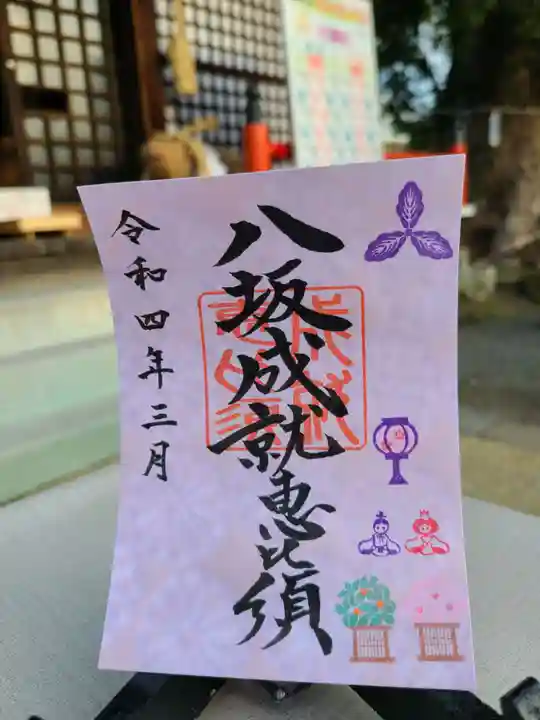 八坂成就恵比須
令和四年三月